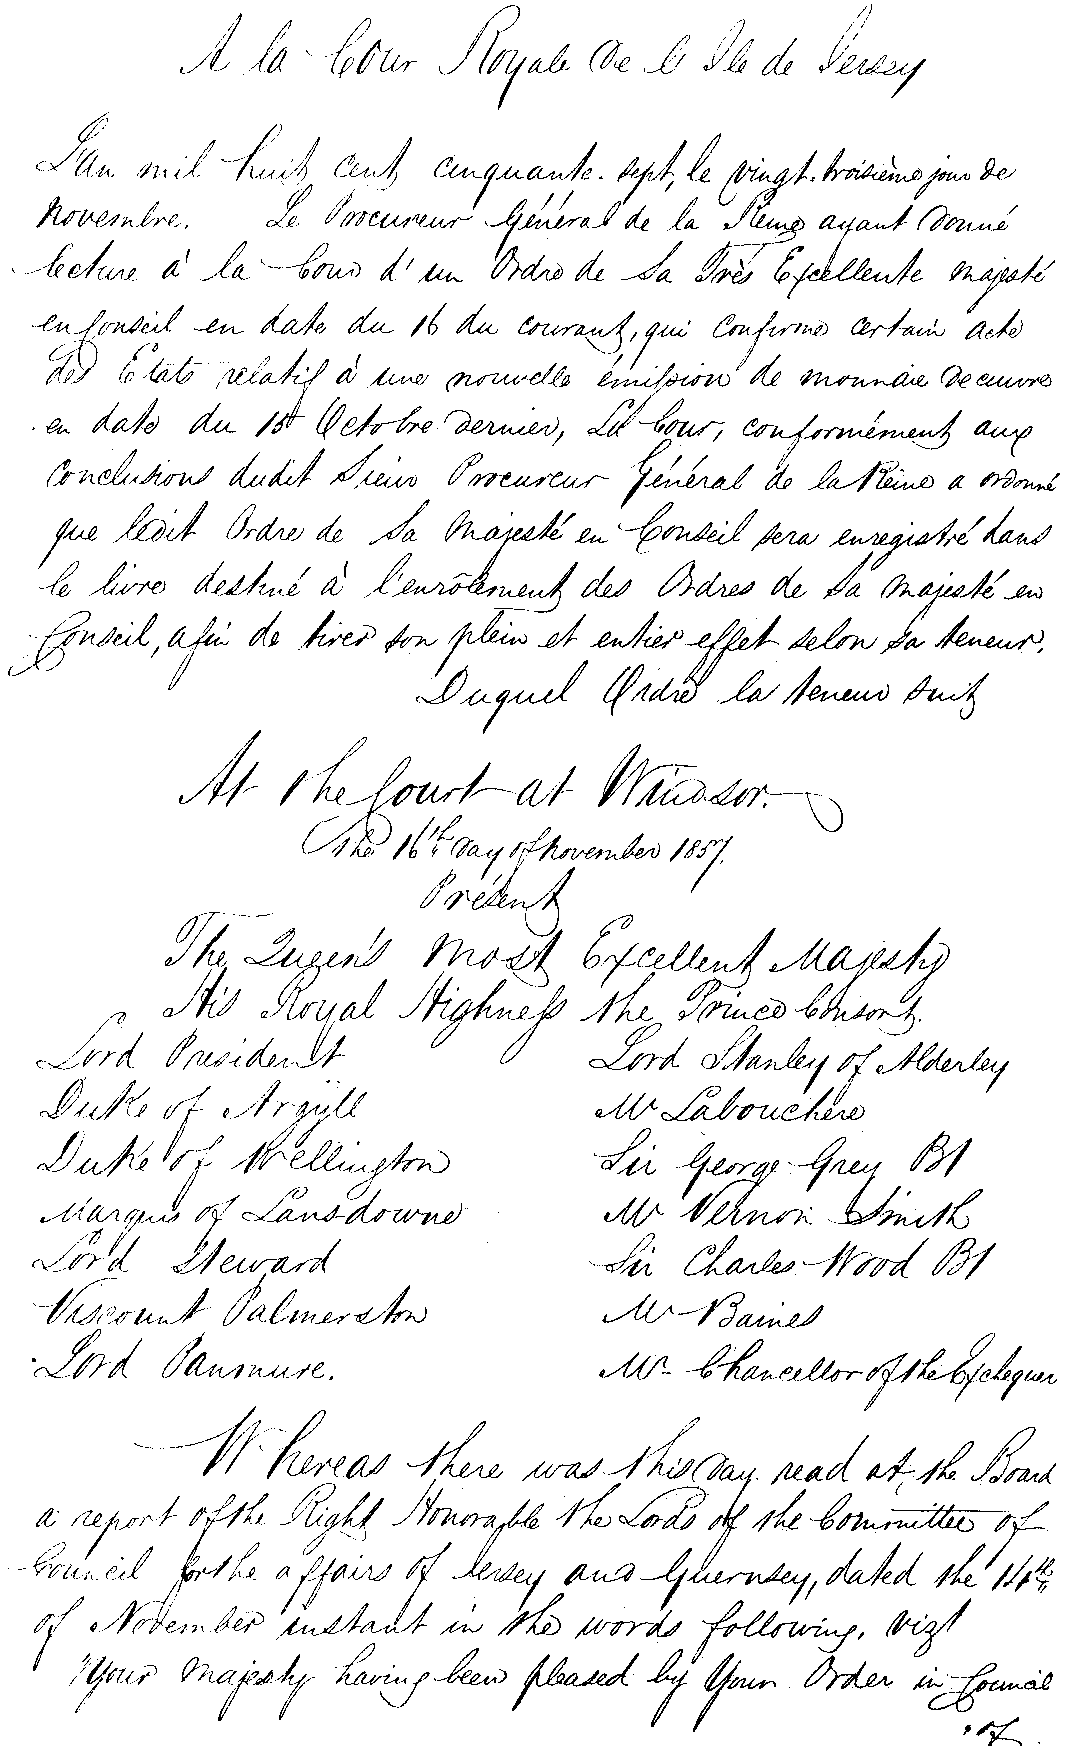 A la Cour Royale de l'Ile de Jersey
L'an mil huit cent cinquante-sept, le vingt-troisième jour de
Novembre. Le Procureur Général de la Reine ayant donné
lecture à la Cour d'un Ordre de Sa Très Excellente Majesté
en Conseil en date du 16 du courant, qui confirme certain Acte
des Etats relatif à une nouvelle émission de monnaie de cuivre
en date du 15 Octobre dernier, La Cour, conformément aux
conclusions dudit Sieur Procureur Général de la Reine a ordonné
que ledit Ordre de Sa Majesté en Conseil sera enregistré dans
le livre destiné à l'enrôlement des Ordres de Sa Majesté en
Conseil, afin de tirer son plein et entier effet selon sa teneur.
Duquel Ordre la teneur suit
At the Court at Windsor.
The 16th day of November 1857.
Présent
The Queen's Most Excellent Majesty
His Royal Highness the Prince Consort.
Lord President Lord Stanley of Alderley
Duke of Argyll Mr Labouchere
Duke of Wellington Sir George Grey Bt
Marquis of Lansdowne Mr Vernon Smith
Lord Steward Sir Charles Wood Bt
Viscount Palmerston Mr Baines
Lord Panmure. Mr Chancellor of the Exchequer
Whereas there was this day read at the Board
a report of the Right Honorable the Lords of the Committee of
Council for the affairs of Jersey and Guernsey, dated the 14th
of November instant in the words following, vizt
"Your Majesty having been pleased by Your Order in Council
of